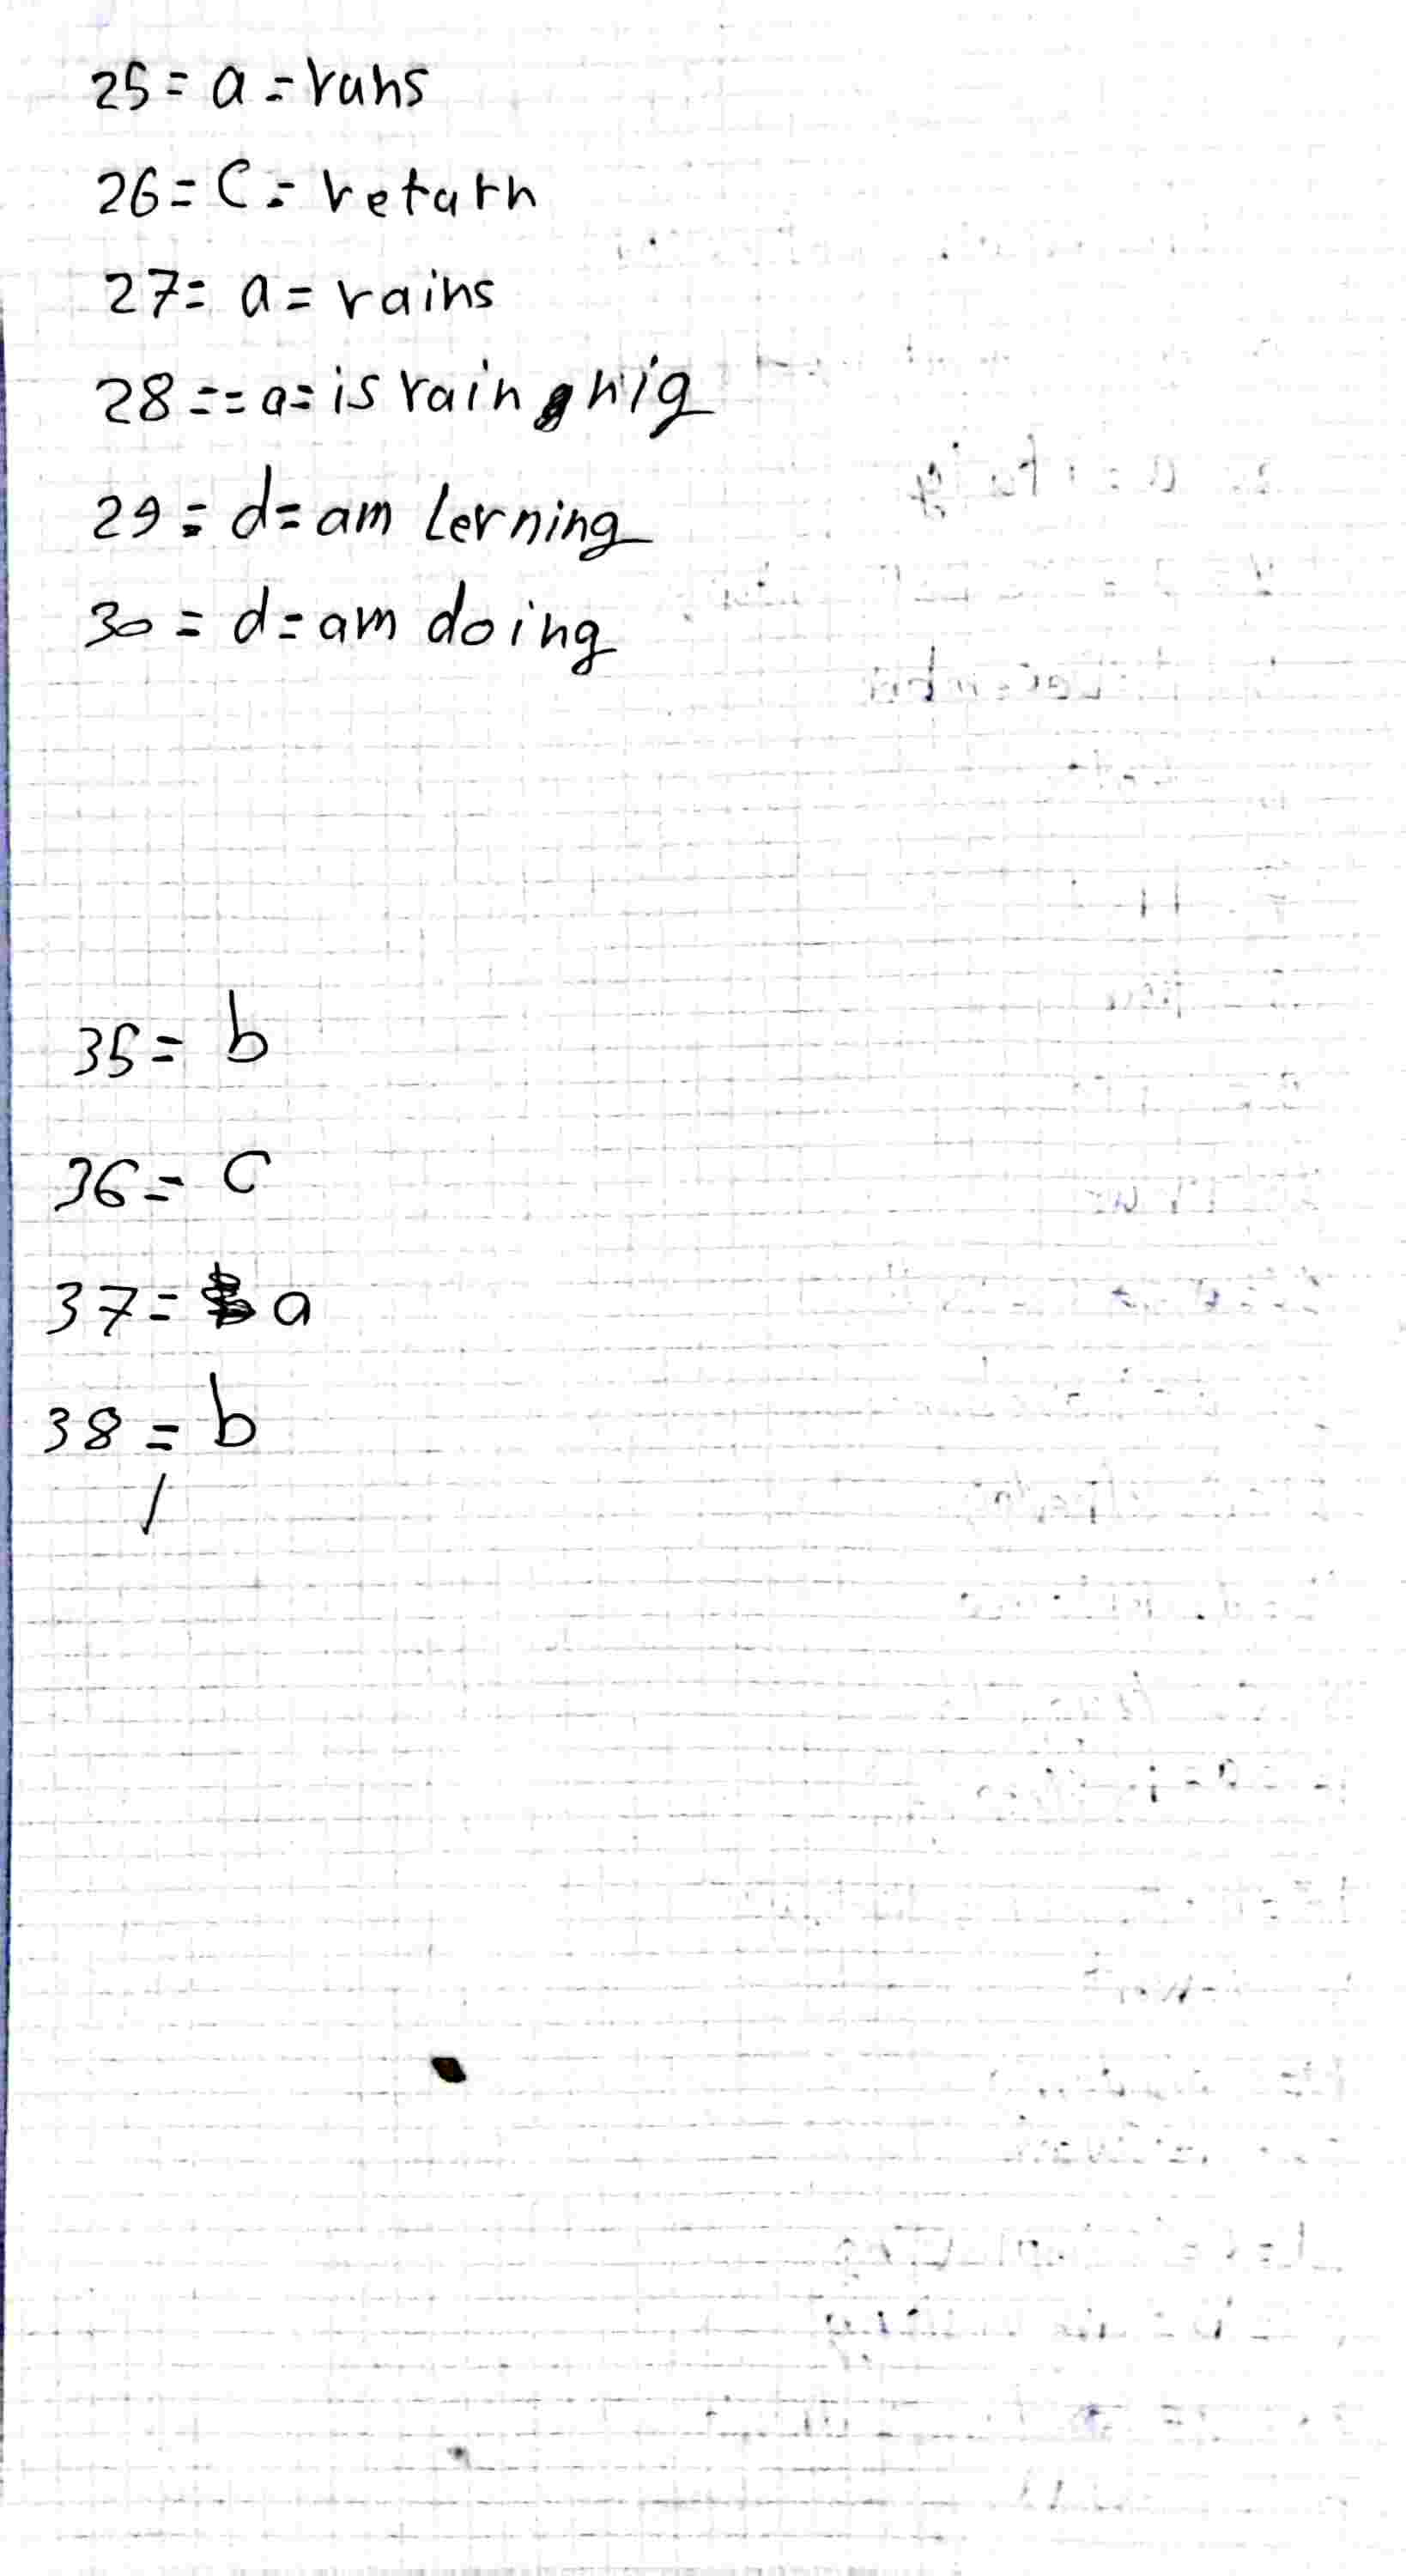 25 = a = runs
26 = C = return
27 = a = rains
28 = = a = is rain nig
29 = d = am Lerning
30 = d = am doing
35 = b
36 = c
37 = a
38 = b
/